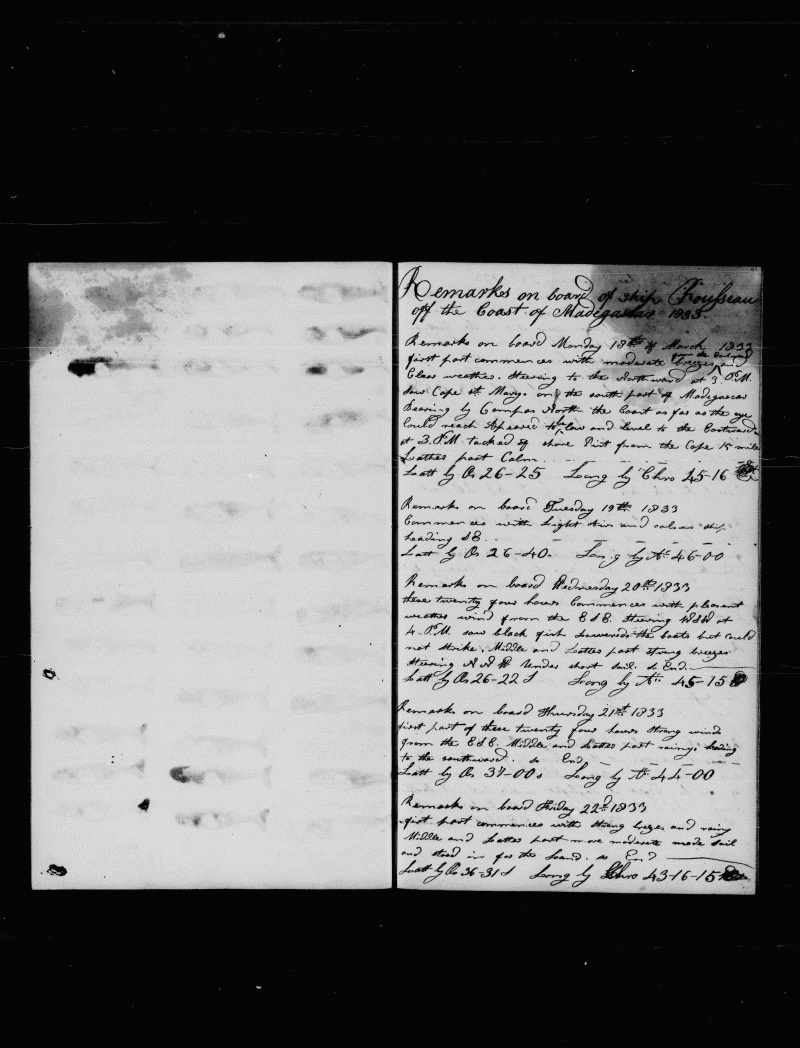 Remarks on board of ship Rousseau
off the Coast of Madegascar 1833.
Remarks on board Monday 18th of March 1833
first part commences with moderate breezes and
Clear weather. Steering to the Northward at 3 P.M.
saw Cape St Mary. on the south part of Madegascar
Bearing by Compas North. the Coast as far as the eye
Could reach Apeared to be low and level to the Eastward
at 3. P.M. tacked of shore Dist from the Cape 15 mile
Lattes part Calm
Latt by Os 26-25 Long by Chro 45-16
Remark on board Tuesday 19th 1833
Commences with Light Airs and calms ship
heading SE.
Latt by Os 26-40. Long by Ac 46-00
Remark on board Wednesday 20th 1833
these twenty four hours Commences with pleasant
weather wind from the ESE. Steering WSW at
4. P.M. saw black fish Lowered the boats but Could
not strike. Middle and Lattes part strong breezes
Steering under short sail. so End.
Latt by Os 26-22 S Long by Ac 45-15
Remarks on board Thursday 21st 1833
first part of these twenty four hours strong winds
from the ESE. Middle and Lattes part rainy heading
to the southward. so End
Latt by Os 37-00 s Long by Ac 44-00
Remarks on board Friday 22d 1833
first part commences with strong brezes and rainy
Middle and Lattes part more moderate made sail
and stood in for the Land. so End
Latt by Os 36-31 S Long by Chro 43-16-15